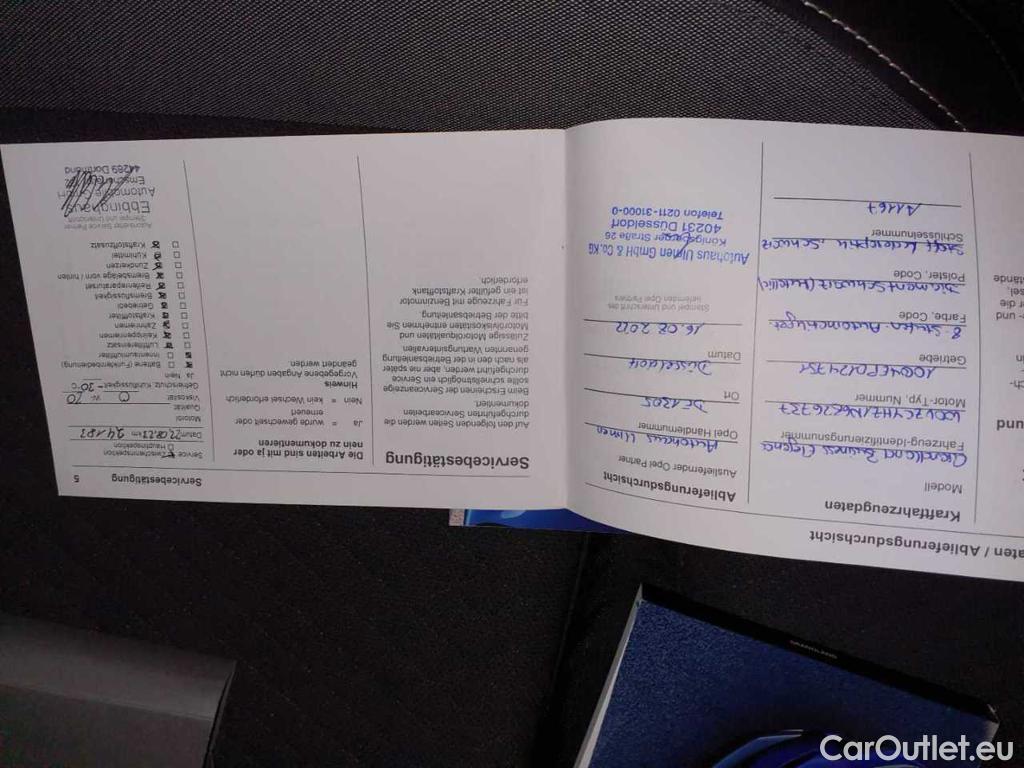 aten / Ablieferungsdurchsicht
Kraftfahrzeugdaten
Modell
Grandland Business Elegance
Fahrzeug-Identifizierungsnummer
Motor-Typ, Nummer
Getriebe
8-Stufen Automatikget.
Farbe, Code
Diamant Schwarz
Polster, Code
Schwarz
Schlüsselnummer
A1167
Ablieferungsdurchsicht
Ausliefernder Opel Partner
Autohaus Ulmen
Opel Händlernummer
DE1305
Ort
Düsseldorf
Datum
16.08.2022
Stempel und Unterschrift des
liefernden Opel Partners
Autohaus Ulmen GmbH & Co.KG
Königsberger Straße 26
40231 Düsseldorf
Telefon 0211-31000-0
Servicebestätigung
Auf den folgenden Seiten werden die
durchgeführten Servicearbeiten
dokumentiert.
Beim Erscheinen der Serviceanzeige
sollte schnellstmöglich ein Service
durchgeführt werden, aber nie später
als nach den in der Betriebsanleitung
genannten Wartungsintervallen.
Zulässige Motorölqualitäten und
Motorviskositäten entnehmen Sie
bitte der Betriebsanleitung.
Für Fahrzeuge mit Benzinmotor
ist ein gefüllter Kraftstofftank
erforderlich.
Servicebestätigung 5
Die Arbeiten sind mit ja oder
nein zu dokumentieren
Ja = wurde gewechselt oder
erneuert
Nein = kein Wechsel erforderlich
Hinweis
Vorgegebene Angaben dürfen nicht
geändert werden
Service Zwischeninspektion
Hauptinspektion
Datum km
Motoröl
Qualität
Viskosität 0 W- 20
Gefrierschutz Kühlflüssigkeit -30 °C
Ja Nein
Batterie (Funkfernbedienung)
Innenraumluftfilter
Luftfiltereinsatz
Keilrippenriemen
Zahnriemen
Kraftstofffilter
Getriebeöl
Bremsflüssigkeit
Reifenreparaturset
Bremsbeläge vorn / hinten
Zündkerzen
Kühlmittel
Kraftstoffzusatz
Autorisierter Service Partner
Stempel und Unterschrift
Ebbinghaus
Automobile GmbH
44269 Dortmund
GRANDLAND
CarOutlet.eu